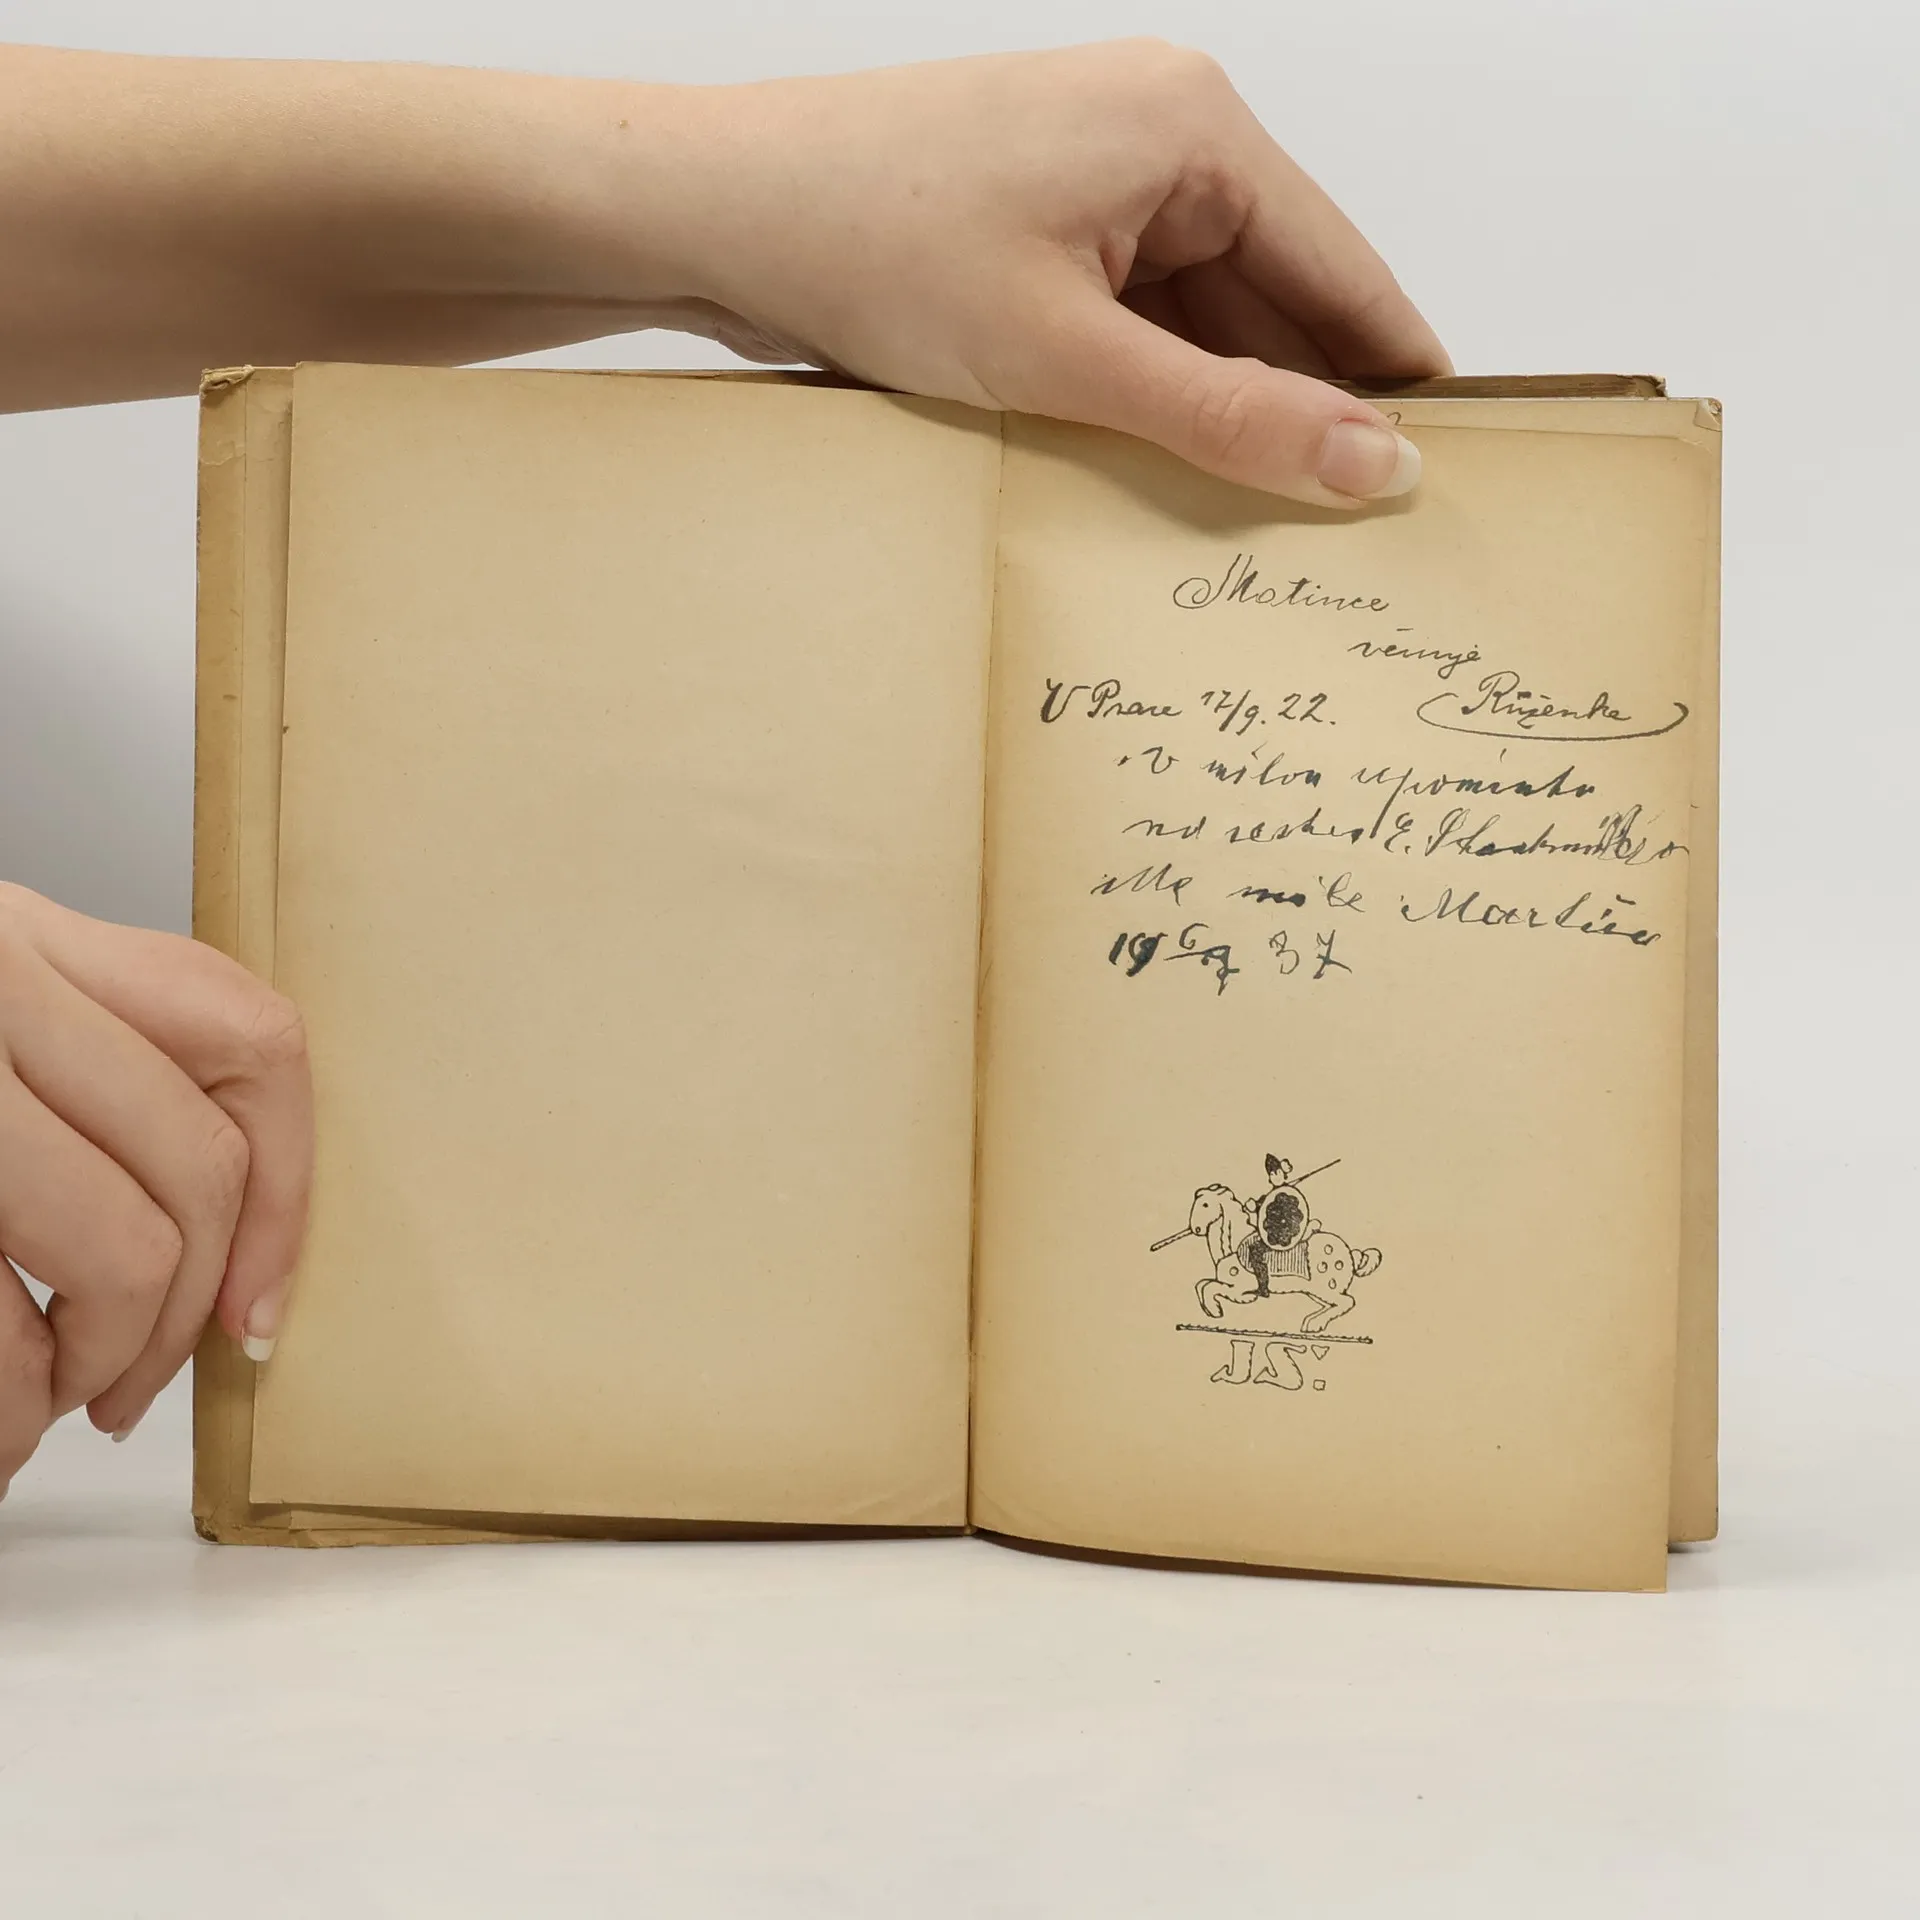 Matince
věnuje
V Praze 17/9. 22. Růženka
V milou upomínku
na sestru E.
Má milé Martičce
19 6/9 37
JS: